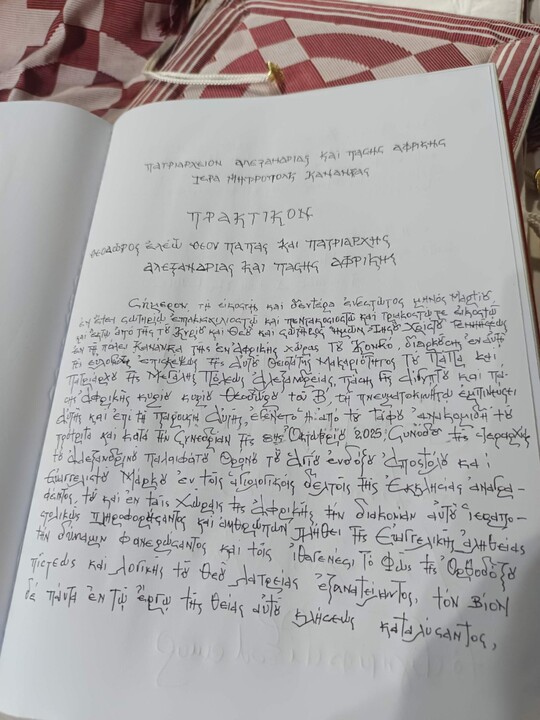 ΠΑΤΡΙΑΡΧΕΙΟΝ ΑΛΕΞΑΝΔΡΙΑΣ ΚΑΙ ΠΑΣΗΣ ΑΦΡΙΚΗΣ
ΙΕΡΑ ΜΗΤΡΟΠΟΛΙΣ ΚΑΝΑΝΓΚΑΣ
ΠΡΑΚΤΙΚΟΝ
ΘΕΟΔΩΡΟΣ ἐλέῳ Θεοῦ ΠΑΠΑΣ ΚΑΙ ΠΑΤΡΙΑΡΧΗΣ
ΑΛΕΞΑΝΔΡΙΑΣ ΚΑΙ ΠΑΣΗΣ ΑΦΡΙΚΗΣ
Σήμερον, τῇ εἰκοστῇ καὶ δευτέρᾳ ἐνεστῶτος μηνὸς Μαρτίου
ἐν ἔτει σωτηρίῳ καὶ εἰκοστῷ
καὶ ἀπὸ τῆς τοῦ Κυρίου καὶ Θεοῦ καὶ σωτῆρος ἡμῶν Ἰησοῦ Χριστοῦ Γεννήσεως
ἐν τῇ πόλει Κανάνγκα τῆς ἐν Ἀφρικῇ χώρας τοῦ Κονγκό,
τῆς ἐπισκέψεως τῆς Αὐτοῦ Θειοτάτης Μακαριότητος τοῦ Πάπα καὶ
Πατριάρχου τῆς Μεγάλης Πόλεως Ἀλεξανδρείας, πάσης γῆς Αἰγύπτου καὶ πά-
σης Ἀφρικῆς κυρίου κυρίου Θεοδώρου τοῦ Β΄, τῇ πνευματοκινήτῳ ἐμπνεύσει
αὐτῆς καὶ ἐπὶ τῇ παρουσίᾳ αὐτῆς, ἐγένετο ἡ ἀπὸ τοῦ τάφου ἀνακομιδὴ τοῦ
καὶ κατὰ τὴν Συνεδρίαν τῆς Ὀκτωβρίου 2.025; Συνόδου τῆς Ἱεραρχίας
τοῦ Ἀλεξανδρινοῦ παλαιφάτου Θρόνου τοῦ ἁγίου ἐνδόξου Ἀποστόλου καὶ
Εὐαγγελιστοῦ Μάρκου ἐν τοῖς ἁγιολογικοῖς δέλτοις τῆς Ἐκκλησίας
τοῦ καὶ ἐν ταῖς χώραις τῆς Ἀφρικῆς τὴν διακονίαν αὐτοῦ ἱεραπο-
στολικῶς πληροφορήσαντος καὶ ἀνθρώπων πλήθει τῆς Εὐαγγελικῆς ἀληθείας
τὴν δύναμιν φανερώσαντος καὶ τοῖς ἰθαγενέσι τὸ φῶς τῆς Ὀρθοδόξου
πίστεως καὶ λογικῆς τοῦ Θεοῦ λατρείας ἐξανατείλαντος, τὸν ΒΙΟΝ
δὲ πάντα ἐν τῷ ἔργῳ τῆς θείας αὐτοῦ κλήσεως καταλύσαντος,